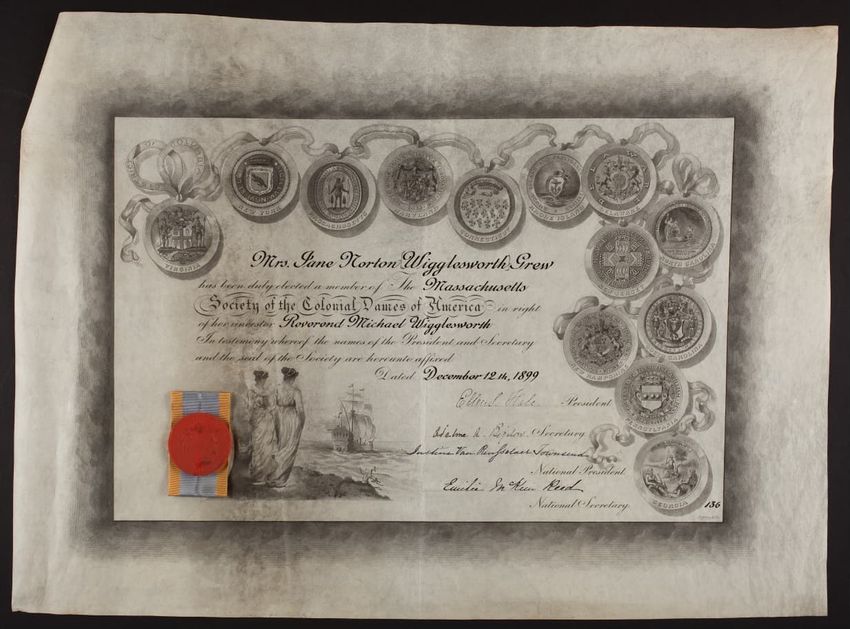 VIRGINIA
NEW YORK
MASSACHUSETTS
CONNECTICUT
DELAWARE
NORTH CAROLINA
NEW HAMPSHIRE
GEORGIA
Mrs. Jane Norton (Wigglesworth) Grew
has been duly elected a member of The Massachusetts
Society of the Colonial Dames of America in right
of her ancestor Reverend Michael Wigglesworth
In testimony whereof the names of the President and Secretary
and the seal of the Society are hereunto affixed
Dated December 12th, 1899
Ellen Hale President
Secretary
Justine Van Rensselaer Townsend
National President
Emilie McKim Reed
National Secretary
136